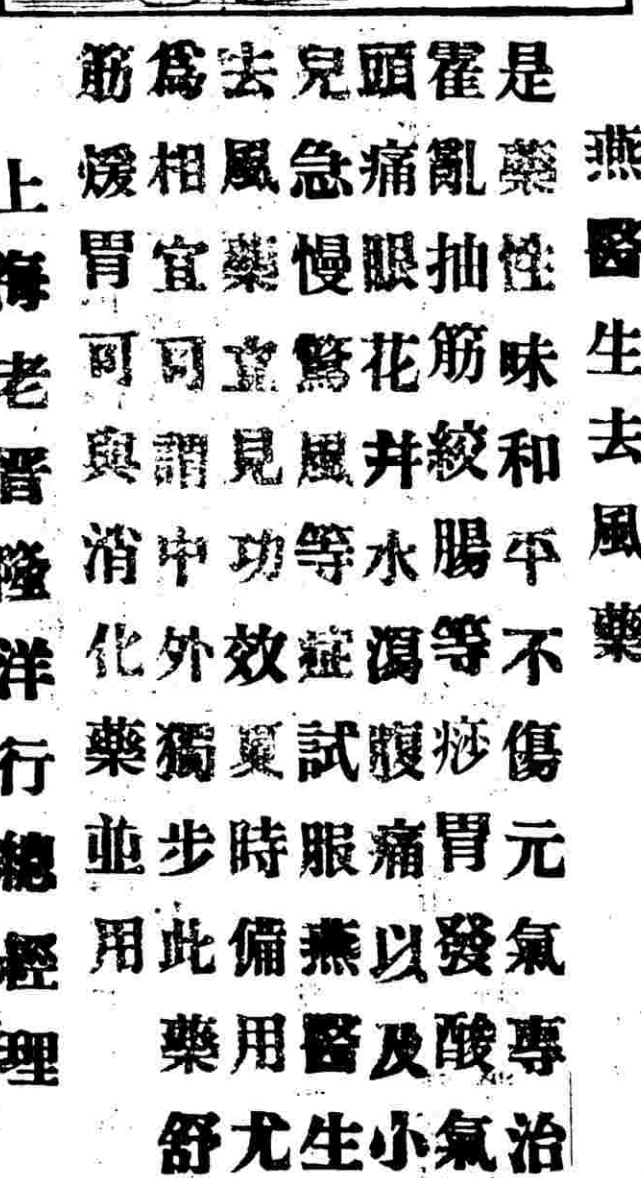 燕醫生去風藥
是藥性味和平不傷元氣專治
霍亂抽筋絞腸等痧胃發酸氣
頭痛眼花井水瀉腹痛以及小
兒急慢驚風等症試服燕醫生
去風藥立見功效夏時備用尤
為相宜可謂中外獨步此藥舒
筋煖胃可與消化藥並用
上海老晋隆洋行總經理